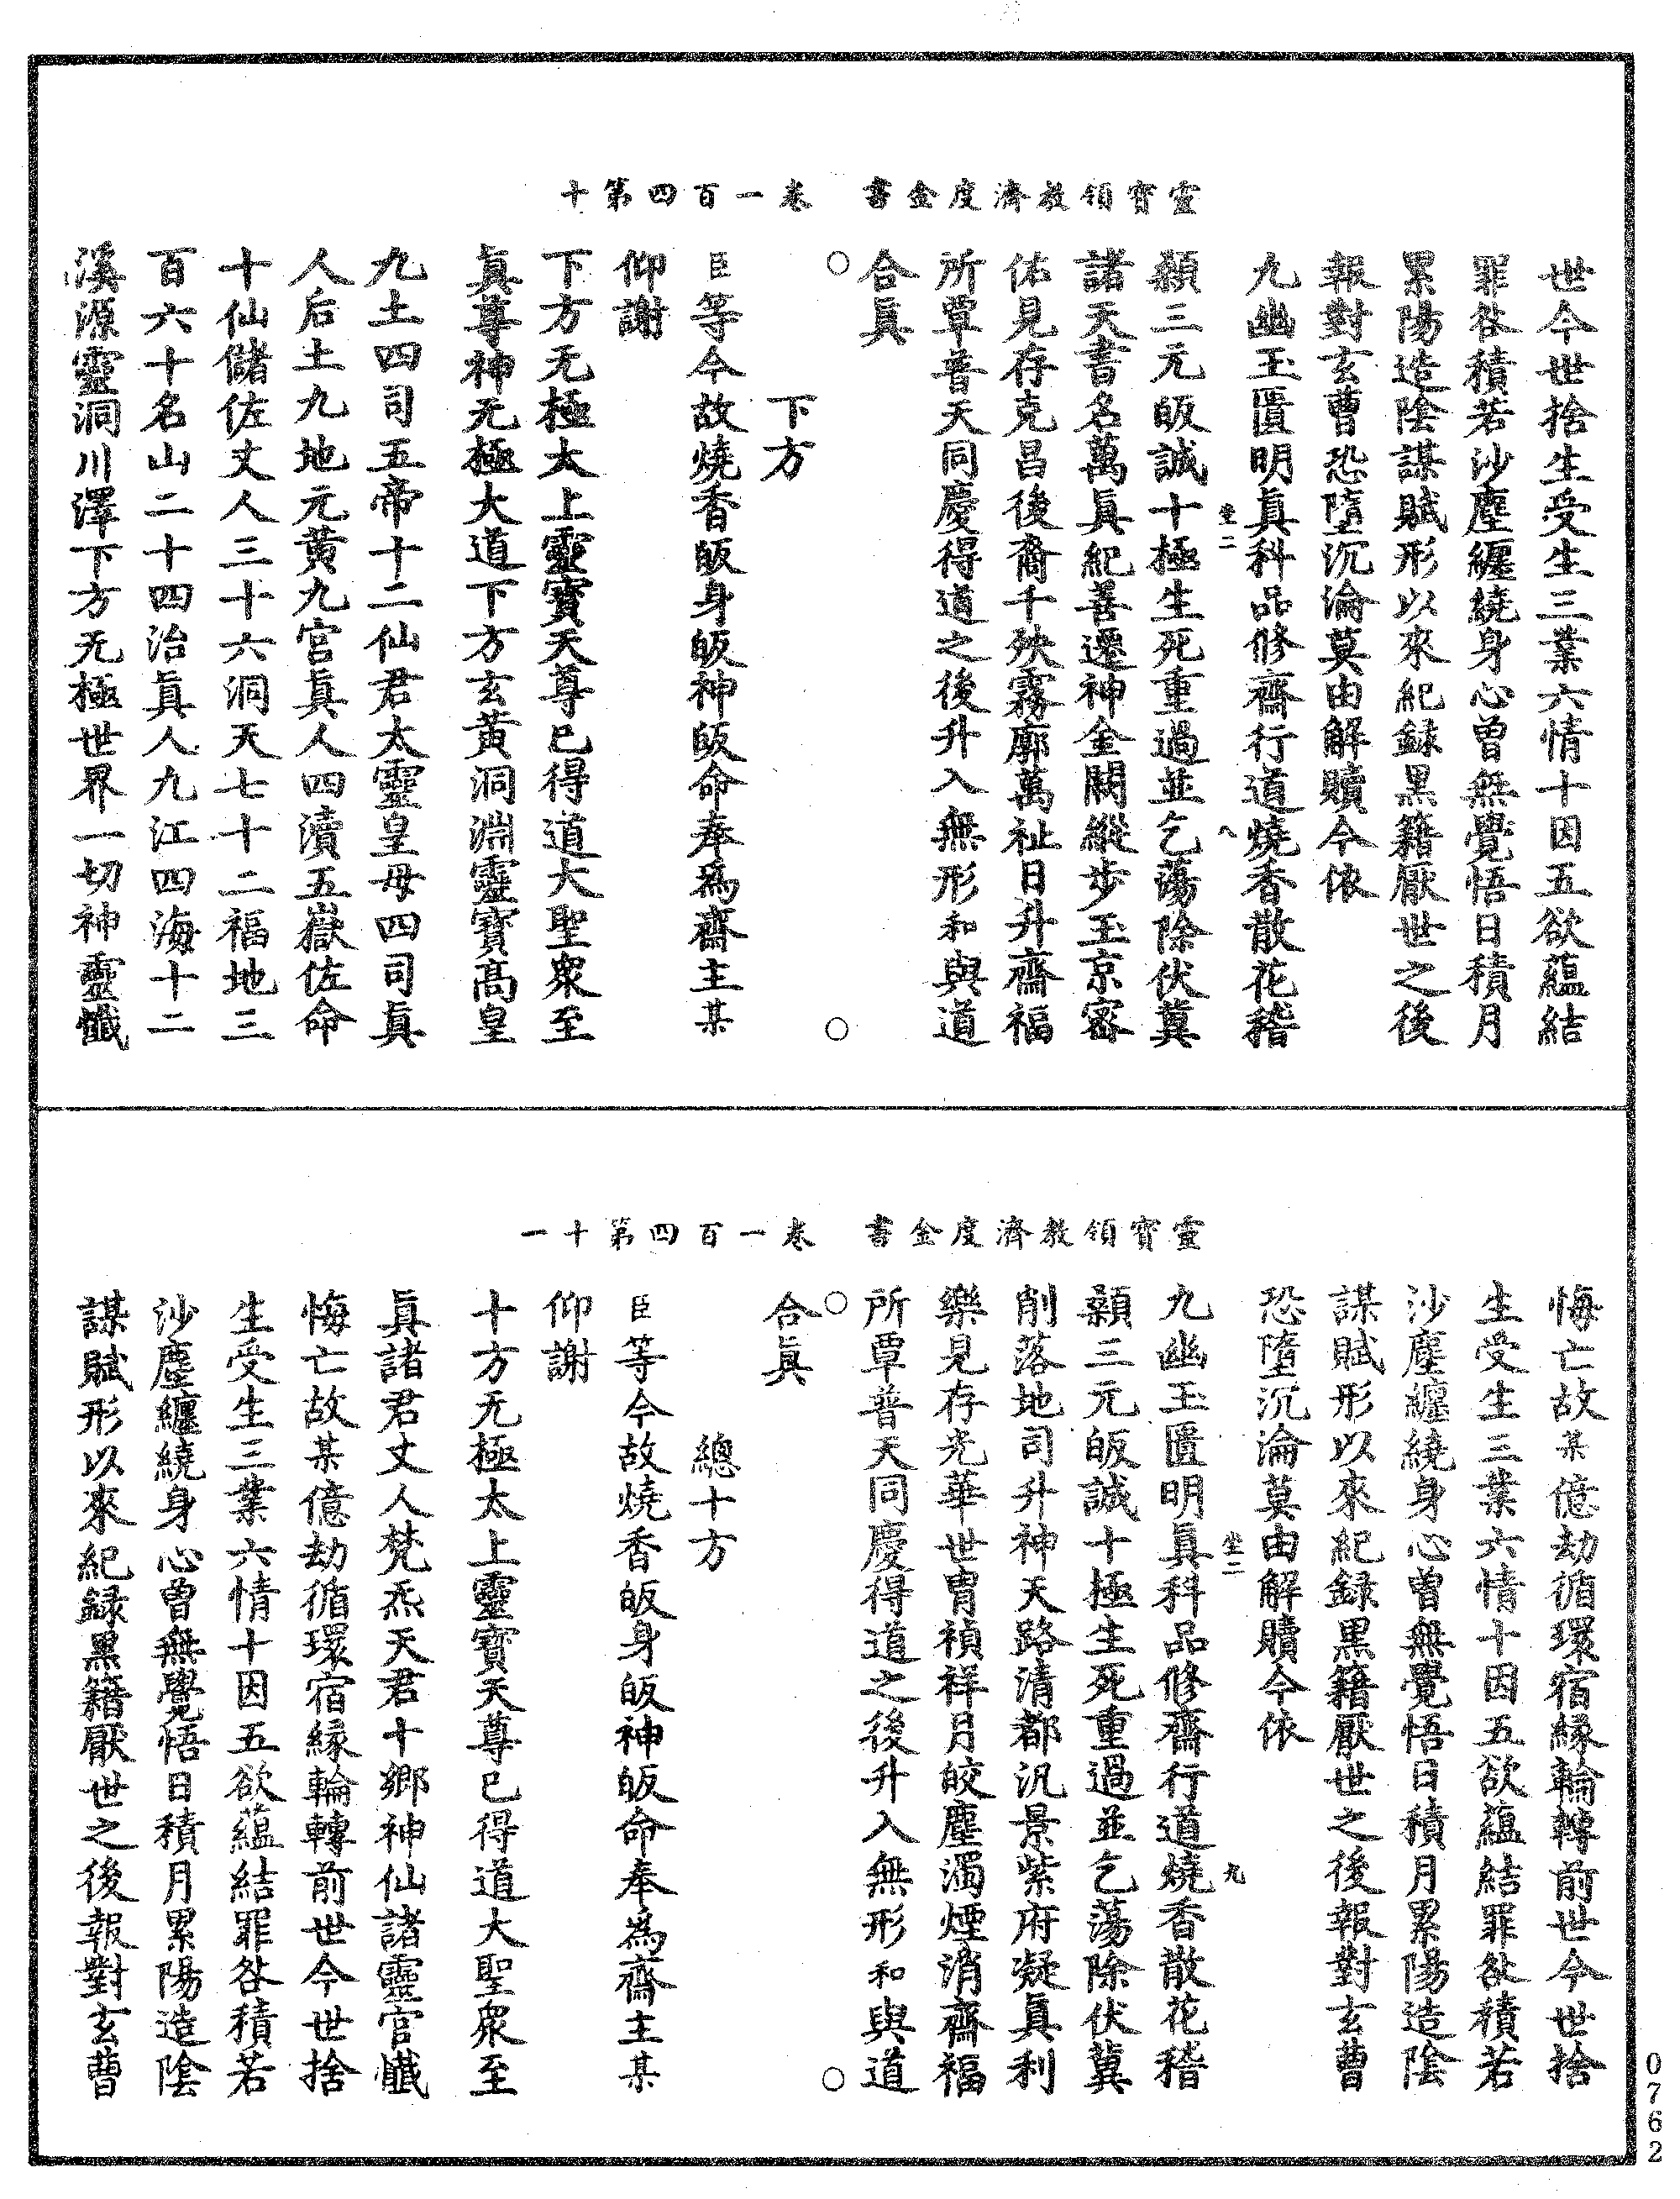 靈寶領教濟度金書　卷一百四第十
世今世捨生受生三業六情十因五欲蘊結
罪咎積若沙塵纏繞身心曾無覺悟日積月
累陽造陰謀賦形以來紀録黑籍厭世之後
報對玄曹恐墮沉淪莫由解贖今依
九幽玉匱明真科品修齋行道燒香散花稽
坐二
八
顙三元皈誠十極生死重過並乞蕩除伏冀
諸天書名萬真紀善遷神金闕縱步玉京密
佑見存克昌後裔千殃霧廓萬祉日升齋福
所覃普天同慶得道之後升入無形和與道
合真
○　○
下方
臣等今故燒香皈身皈神皈命奉為齋主某
仰謝
下方无極太上靈寶天尊已得道大聖衆至
真尊神无極大道下方玄黄洞淵靈寶高皇
九土四司五帝十二仙君太靈皇母四司真
人后土九地元黄九宫真人四瀆五嶽佐命
十仙儲佐丈人三十六洞天七十二福地三
百六十名山二十四治真人九江四海十二
溪源靈洞川澤下方无極世界一切神靈懺
靈寶領教濟度金書　卷一百四第十一
悔亡故某億劫循環宿緣輪轉前世今世捨
生受生三業六情十因五欲蘊結罪咎積若
沙塵纏繞身心曾無覺悟日積月累陽造陰
謀賦形以來紀録黑籍厭世之後報對玄曹
恐墮沉淪莫由解贖今依
九幽玉匱明真科品修齋行道燒香散花稽
坐二
九
顙三元皈誠十極生死重過並乞蕩除伏冀
削落地司升神天路清都汎景紫府凝真利
樂見存光華世胄禎祥月皎塵濁煙消齋福
所覃普天同慶得道之後升入無形和與道
合真
○　○
總十方
臣等今故燒香皈身皈神皈命奉為齋主某
仰謝
十方无極太上靈寶天尊已得道大聖衆至
真諸君丈人梵炁天君十鄉神仙諸靈官懺
悔亡故某億劫循環宿緣輪轉前世今世捨
生受生三業六情十因五欲蘊結罪咎積若
沙塵纏繞身心曾無覺悟日積月累陽造陰
謀賦形以來紀録黑籍厭世之後報對玄曹
0762